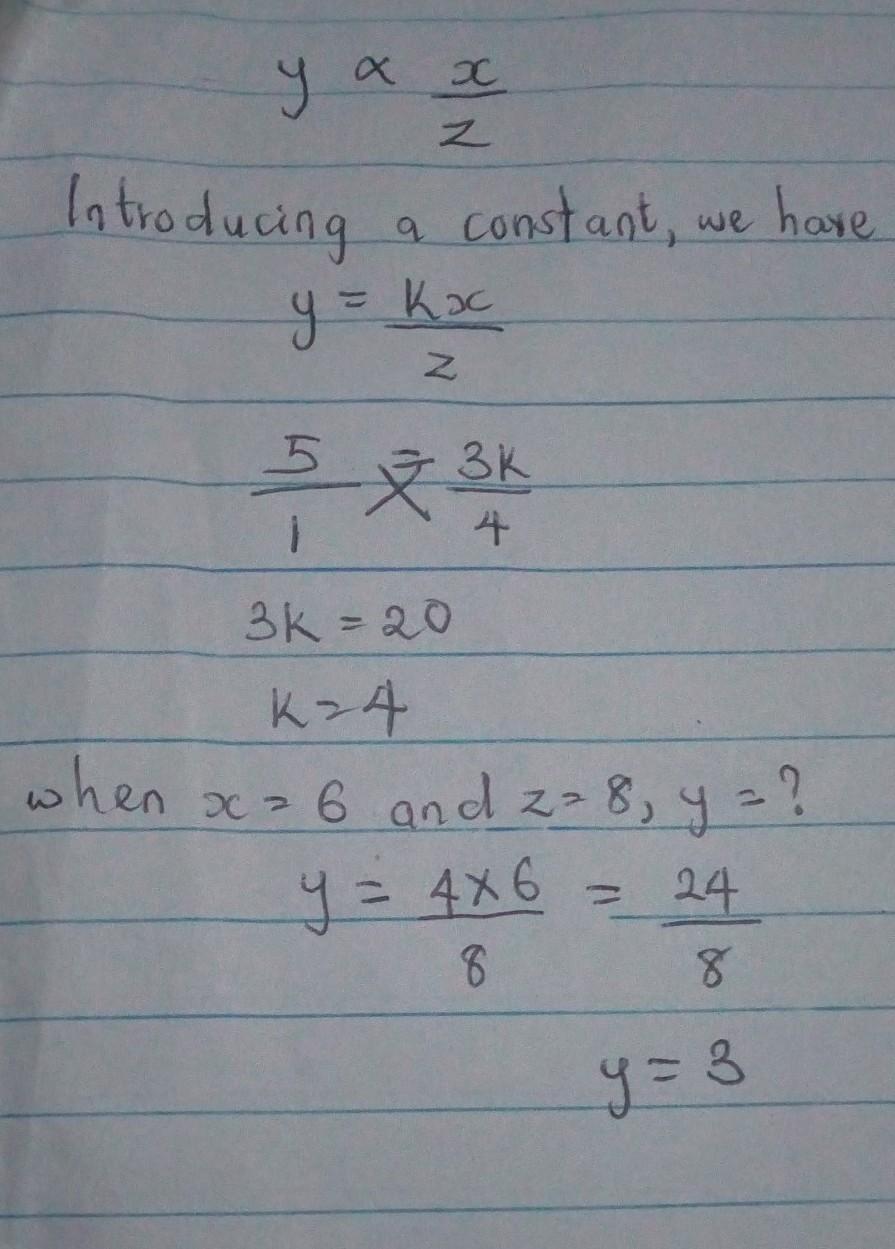 y ∝ x/z
Introducing a constant, we have
y = Kx/z
5/1 = 3K/4
3K = 20
K = 4
when x = 6 and z = 8, y = ?
y = 4×6/8 = 24/8
y = 3